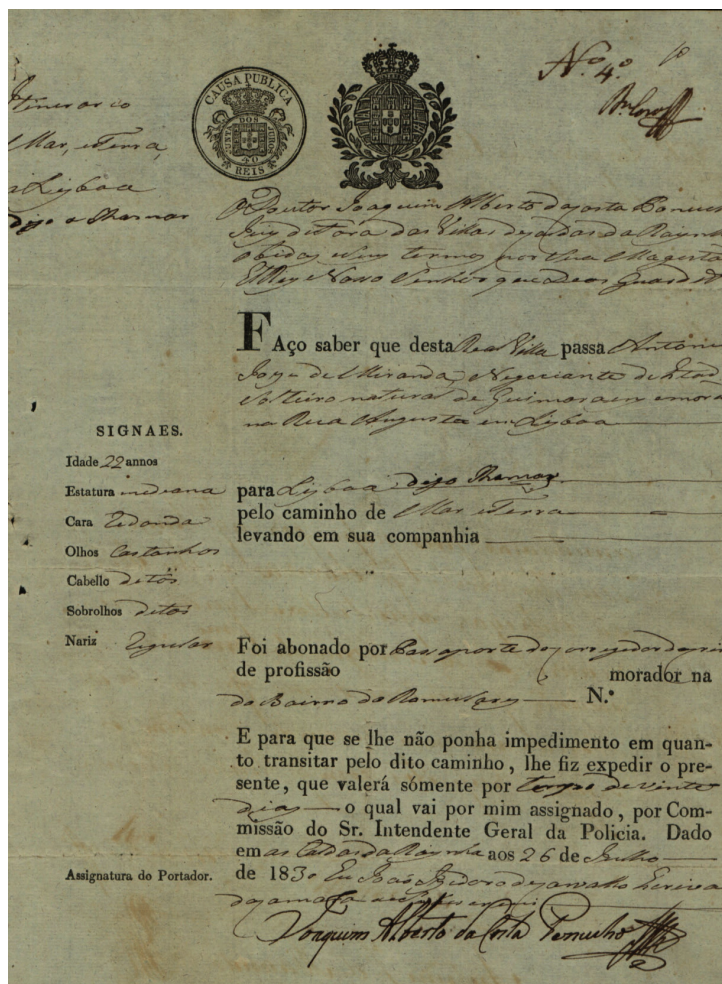 Nº 4º
Itinerario
Mar, e Terra,
a Lisboa
digo a Thomar
CAUSA PUBLICA
JUNTA DOS JUROS
40
REIS
O Doutor Joaquim Alberto da Costa
Juiz de Fora das Villas das Caldas da Raynha
Obidos e seus termos por Sua Magestade
ElRey Nosso Senhor que Deos Guarde
FAço saber que desta Real Villa passa Antonio
Joze de Miranda, Negociante
solteiro natural de Guimaraens e mora
na Rua Augusta em Lisboa
SIGNAES.
Idade 22 annos
Estatura mediana
Cara Redonda
Olhos Castanhos
Cabello ditos
Sobrolhos ditos
Nariz Regular
para Lisboa digo Thomar
pelo caminho de Mar e Terra
levando em sua companhia
Foi abonado por Passaporte do Corregedor
de profissão morador na
do Bairro da N.º
E para que se lhe não ponha impedimento em quan-
to transitar pelo dito caminho, lhe fiz expedir o pre-
sente, que valerá sómente por tempo de vinte
dias o qual vai por mim assignado, por Com-
missão do Sr. Intendente Geral da Policia. Dado
em as Caldas da Raynha aos 26 de Julho
de 1830 Eu João Izidoro de Carvalho
Assignatura do Portador.
Joaquim Alberto da Costa